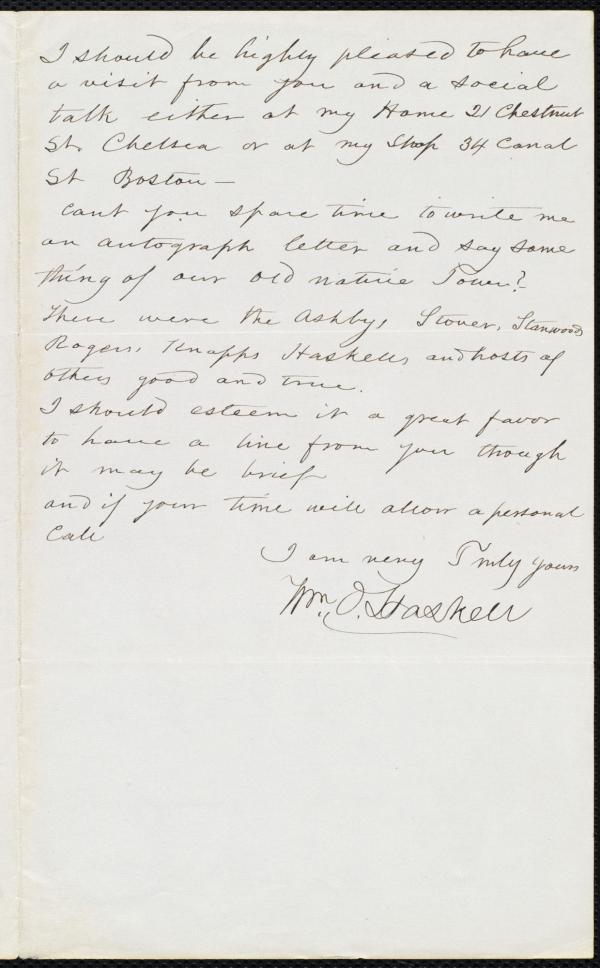 I should be highly pleased to have
a visit from you and a social
talk either at my Home 21 Chestnut
St. Chelsea or at my Shop 34 Canal
St Boston —
Cant you spare time to write me
an autograph letter and say some
thing of our old native Town?
There were the Ashbys, Stover, Stanwoods
Rogers, Knapps Haskells, and hosts of
others good and true.
I should esteem it a great favor
to have a line from you though
it may be brief
and if your time will allow a personal
Call
I am very Truly yours
Wm. O. Haskell